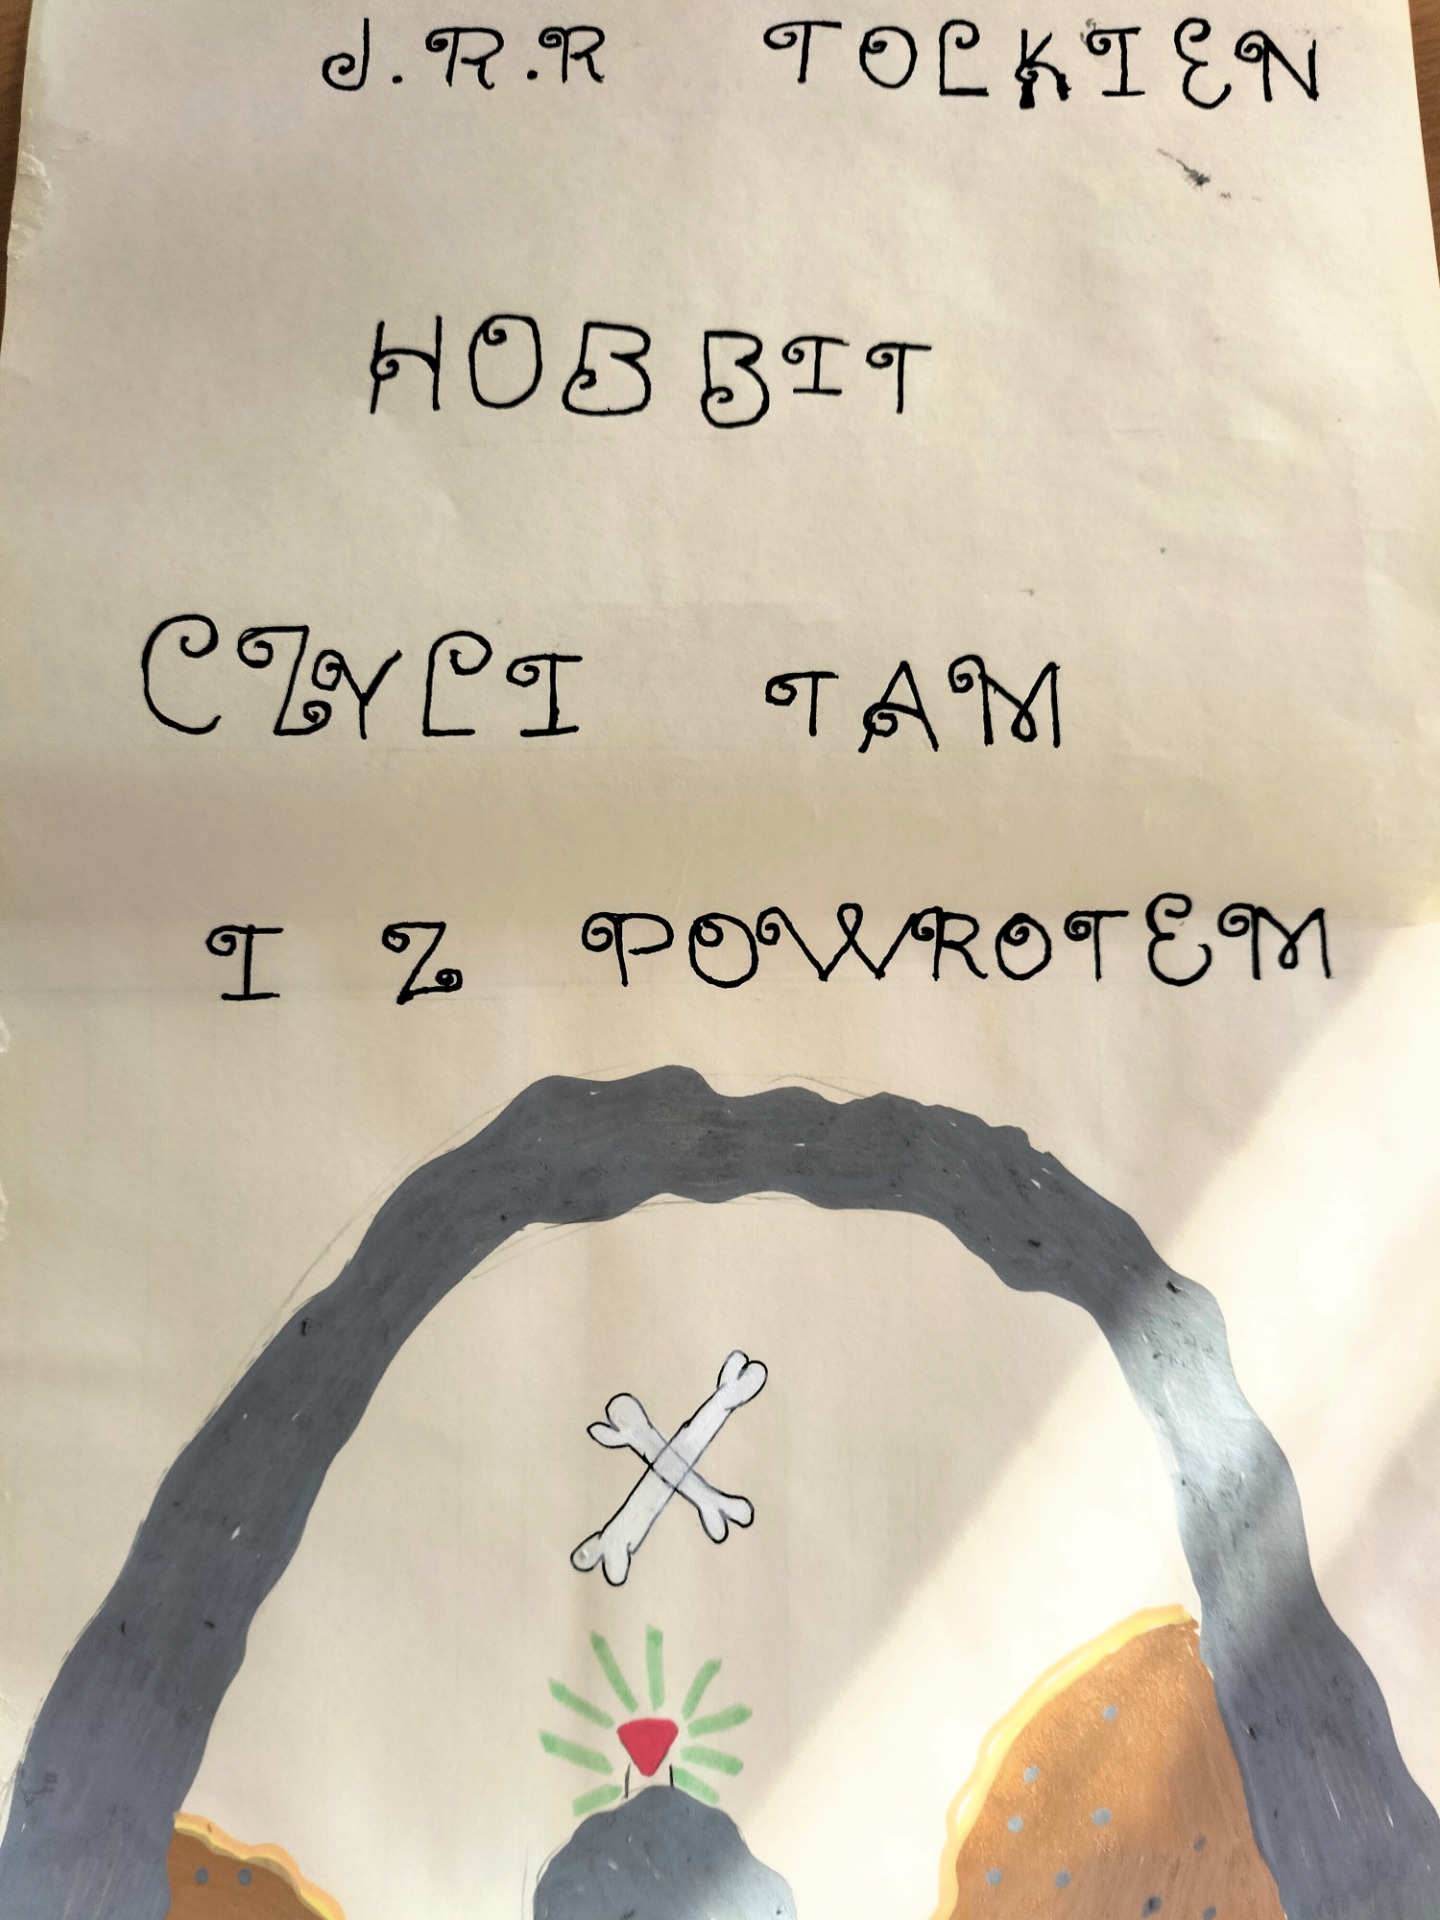 J.R.R TOLKIEN
HOBBIT
CZYLI TAM
I Z POWROTEM